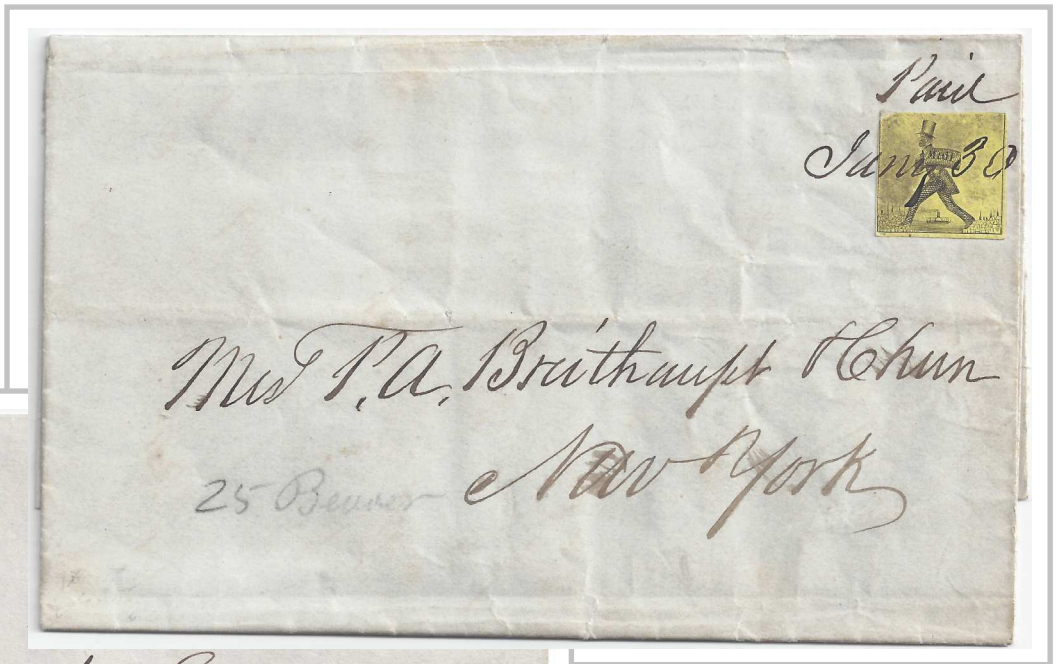 Paid
June 30
MAIL
Mess P. A. Breithaupt
New York
25 Beaver